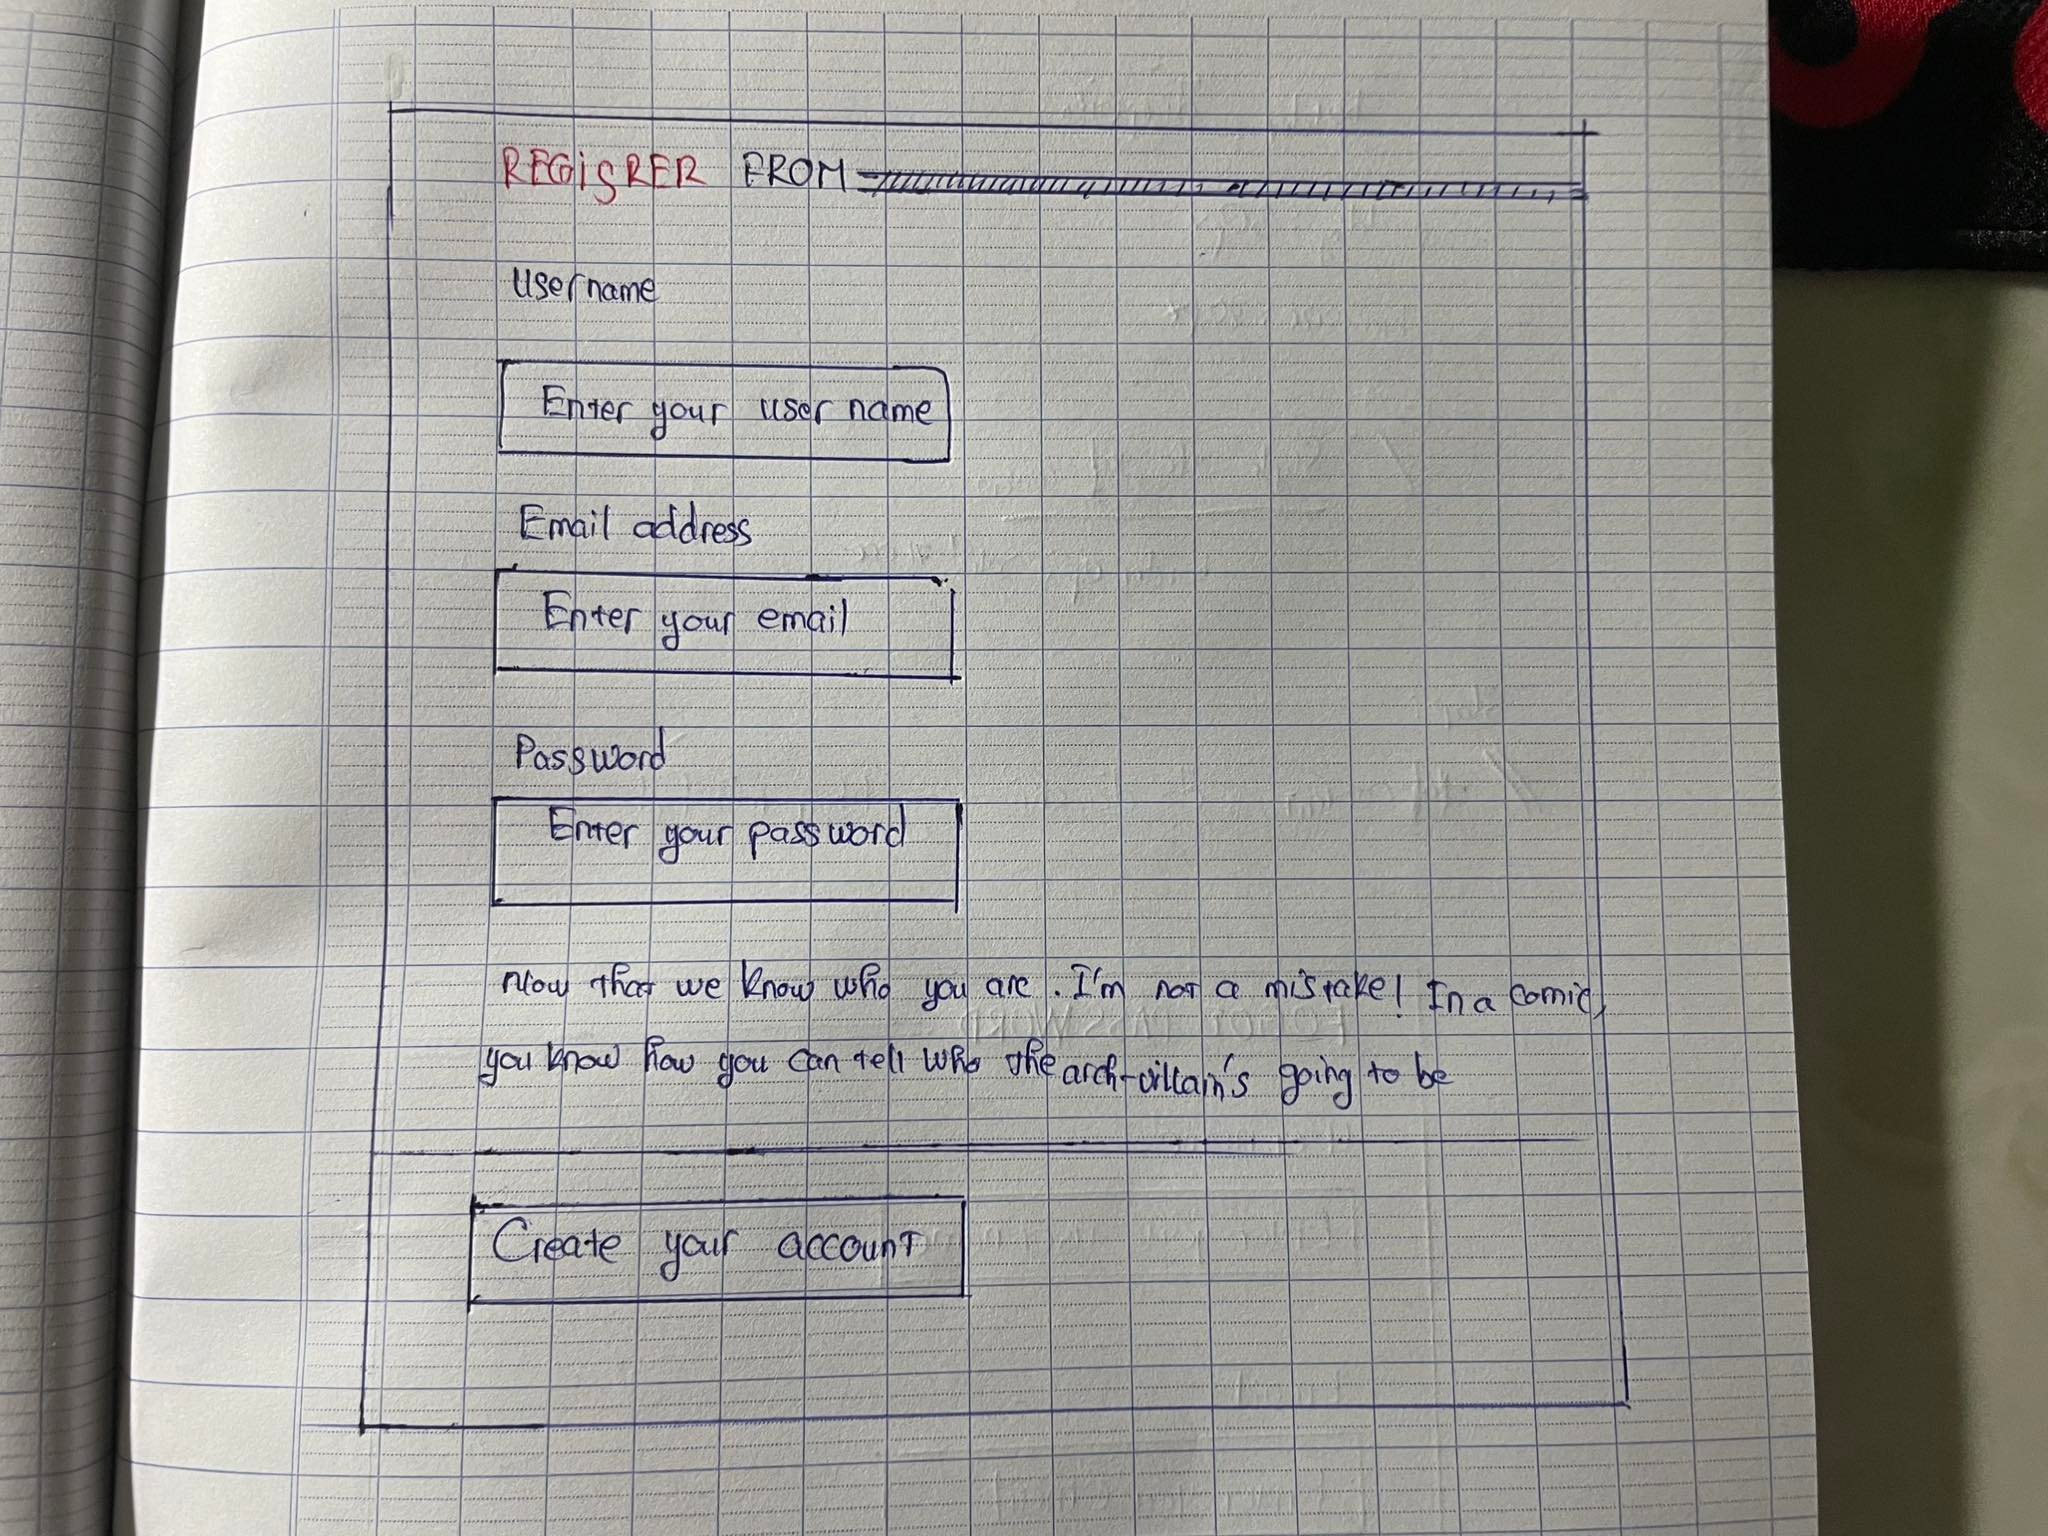 REGISRER FROM
Username
Enter your user name
Email address
Enter your email
Password
Enter your password
Now that we know who you are. I'm not a mistake! In a comic,
you know how you can tell who the arch-villain's going to be
Create your account